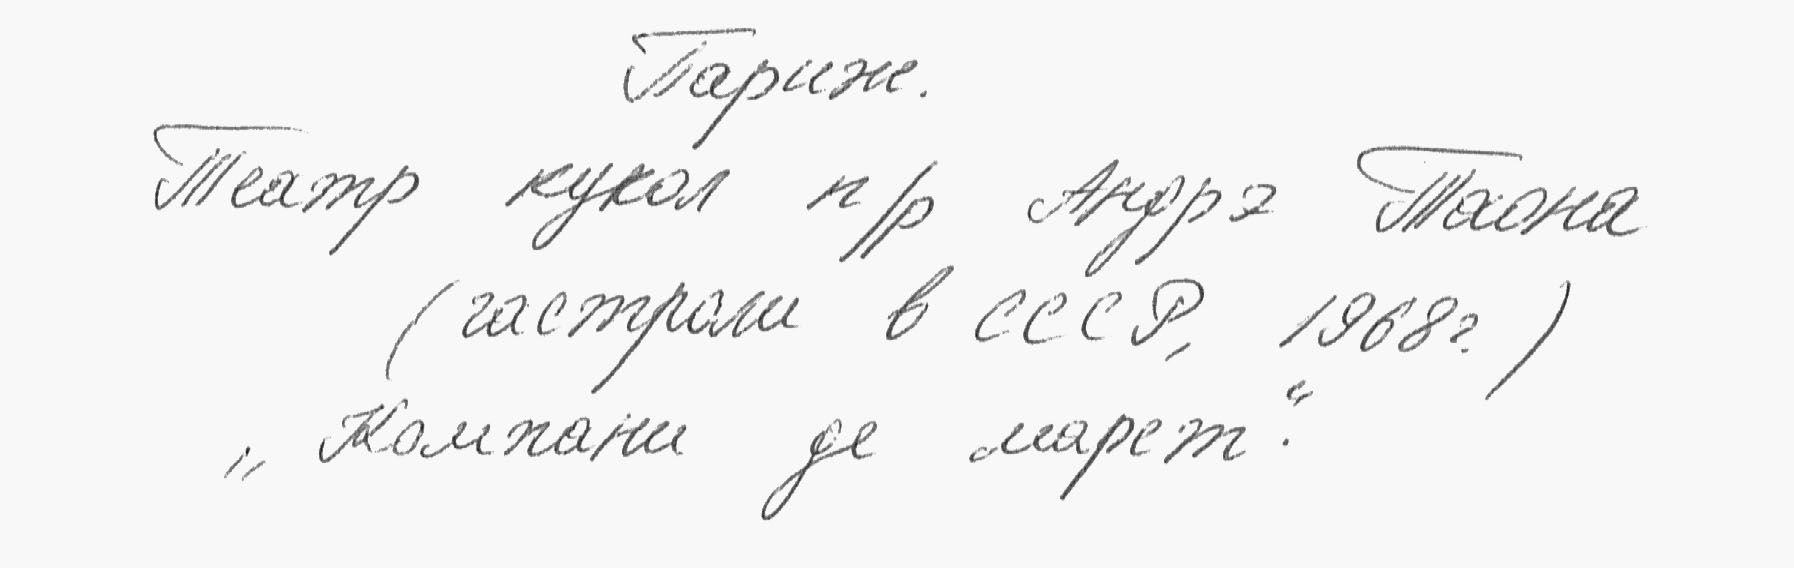 Париж.
Театр кукол п/р Андрэ Таона
(гастроли в СССР, 1968г.)
„Компани де марет“.